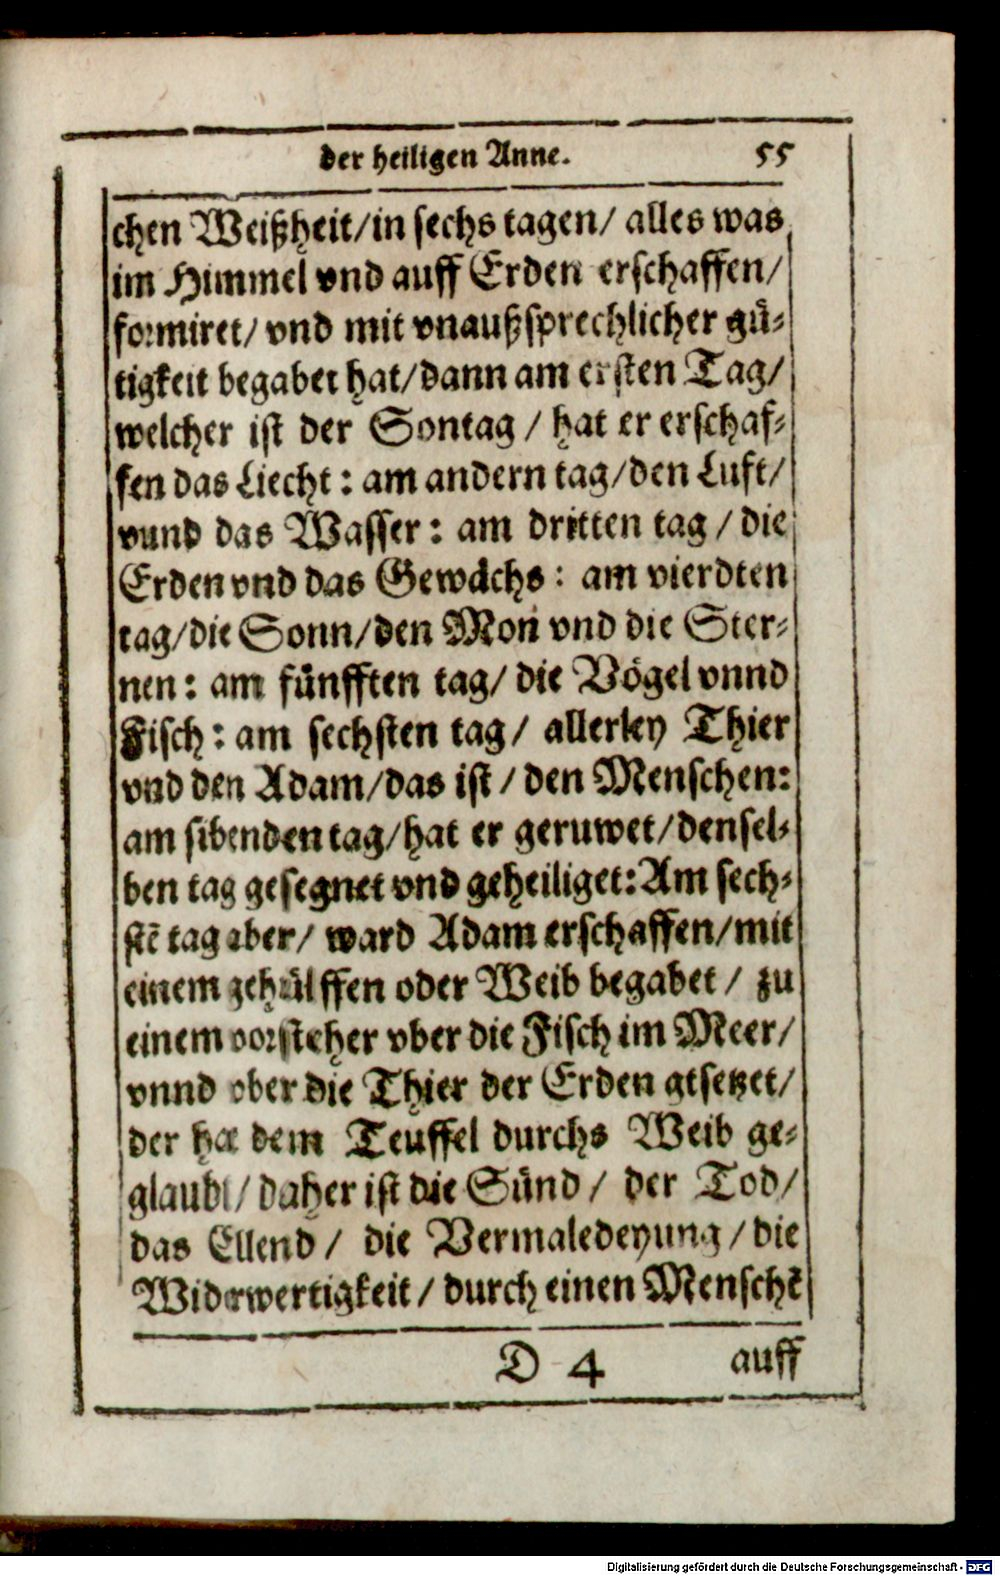 der heiligen Anne. 55
chen Weißheit/in sechs tagen/ alles was
im Himmel vnd auff Erden erschaffen/
formiret/ vnd mit vnaußsprechlicher gü⸗
tigkeit begabet hat/dann am ersten Tag/
welcher ist der Sontag / hat er erschaf⸗
fen das Liecht: am andern tag/den Luft/
vund das Wasser: am dritten tag / die
Erden vnd das Gewächs: am vierdten
tag/die Sonn/den Mon vnd die Ster⸗
nen: am fünfften tag/ die Vögel vnnd
Fisch: am sechsten tag/ allerley Thier
vnd den Adam/das ist / den Menschen:
am sibenden tag/hat er geruwet/densel⸗
ben tag gesegnet vnd geheiliget: Am sech⸗
stē tag aber/ ward Adam erschaffen/mit
einem gehülffen oder Weib begabet / zu
einem vorsteher vber die Fisch im Meer/
vnnd vber die Thier der Erden gesetzet/
der hat dem Teuffel durchs Weib ge⸗
glaubt/ daher ist die Sünd / der Tod/
das Ellend / die Vermaledeyung / die
Widerwertigkeit / durch einen Menschē
D 4 auff
Digitalisierung gefördert durch die Deutsche Forschungsgemeinschaft - DFG